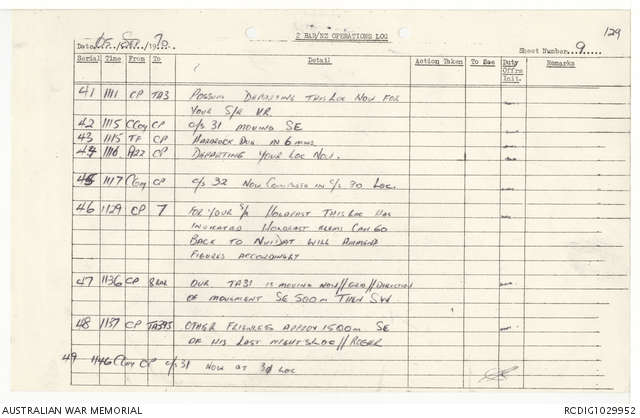 129
2 RAR/NZ OPERATIONS LOG
Date 05/ /1970
Sheet Number 9
Serial Time From To Detail Action Taken To See Duty Offrs Init. Remarks
41 1111 CP TA3 POSSUM DEPARTING THIS LOC NOW FOR
YOUR S/R VR.
42 1115 CCoy CP C/S 31 MOVING SE
43 1115 TF CP HARDROCK DUE IN 6 MINS
44 1116 CP DEPARTING YOUR LOC NOW.
45 1117 CCoy CP C/S 32 NOW COMPLETE IN C/S 30 LOC.
46 1129 CP 7 FOR YOUR HOLDFAST THIS LOC HAS
INDICATED HOLDFAST CAN GO
BACK TO NUI DAT WILL AMMEND
FIGURES ACCORDINGLY
47 1136 CP 8RAR OUR TA31 IS MOVING NOW// //DIRECTION
OF MOVEMENT SE 500m THEN SW
48 1137 CP OTHER FRIENDLIES APPROX 1500m SE
OF HIS LAST NIGHTS LOC//ROGER
49 1146 CCoy CP C/S 31 NOW AT LOC
AUSTRALIAN WAR MEMORIAL
RCDIG1029952